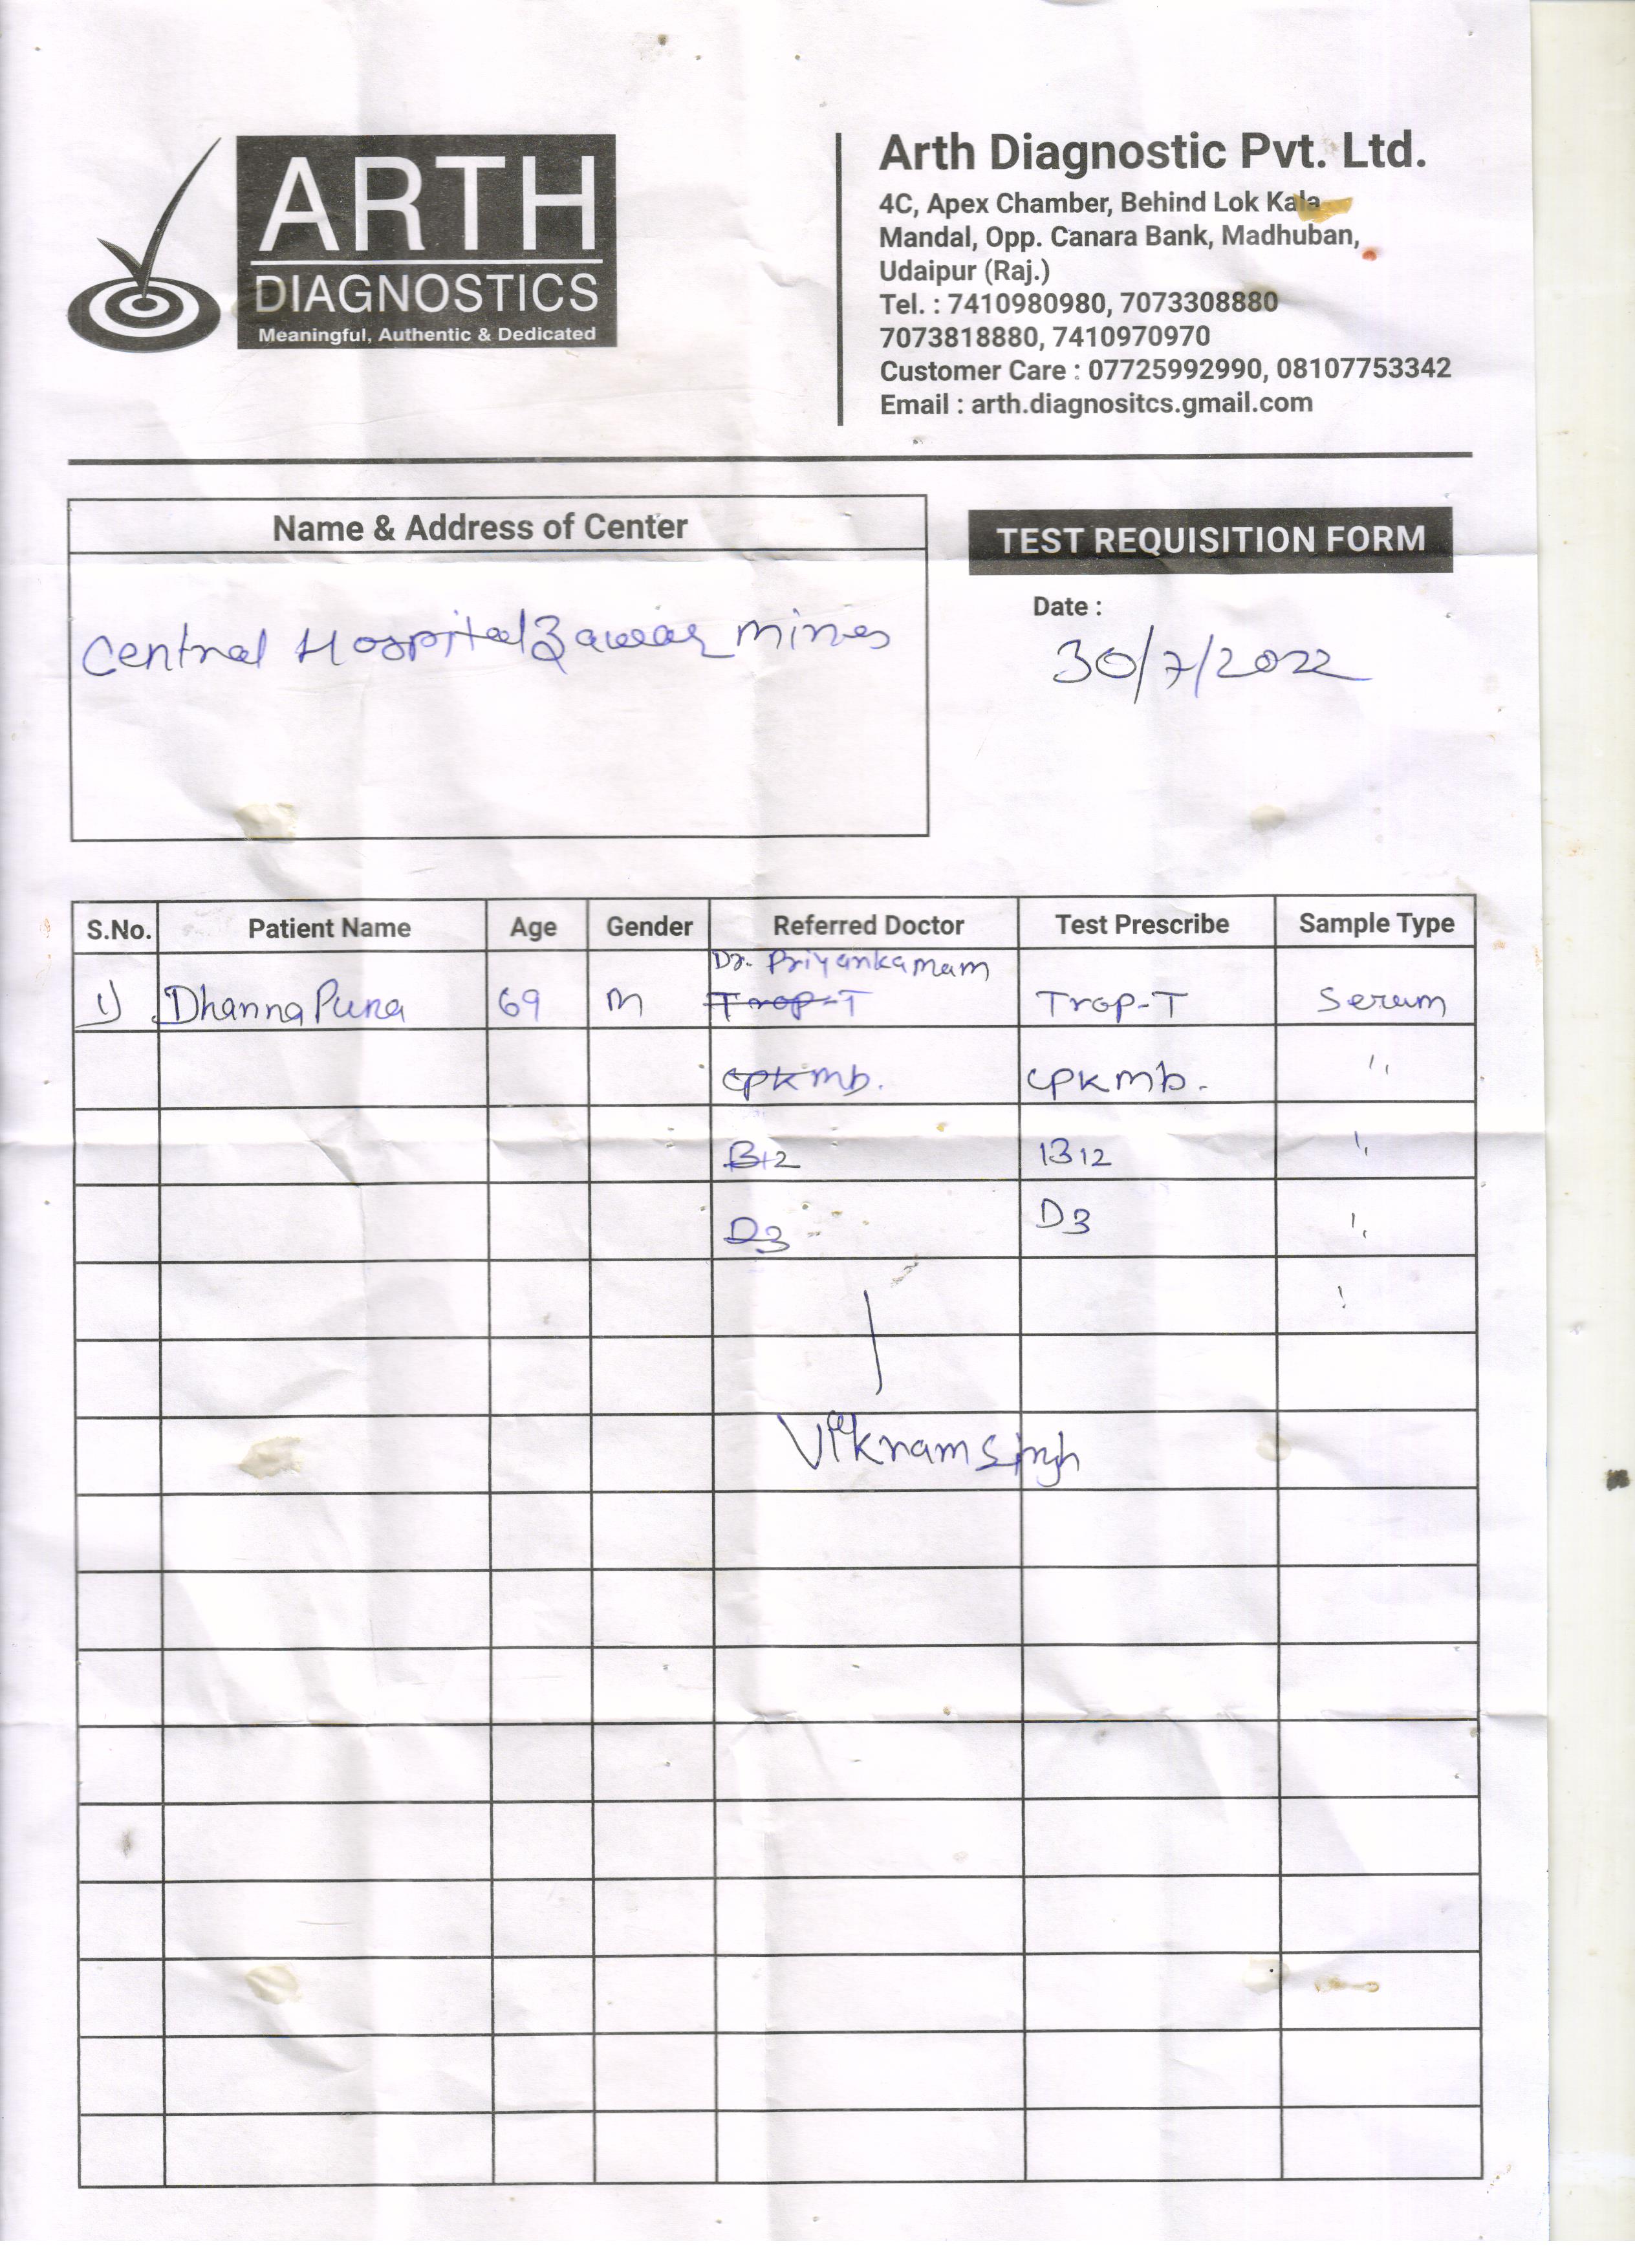 ARTH
DIAGNOSTICS
Meaningful, Authentic & Dedicated
Arth Diagnostic Pvt. Ltd.
4C, Apex Chamber, Behind Lok Kala
Mandal, Opp. Canara Bank, Madhuban,
Udaipur (Raj.)
Tel. : 7410980980, 7073308880
7073818880, 7410970970
Customer Care : 07725992990, 08107753342
Email : arth.diagnositcs.gmail.com
Name & Address of Center
Central Hospital Zawar mines
TEST REQUISITION FORM
Date :
30/7/2022
S.No. Patient Name Age Gender Referred Doctor Test Prescribe Sample Type
Dr. Priyanka mam
1) Dhanna Puna 69 M Trop-T Trop-T Serum
cpkmb. cpkmb. ''
B12 B12 ''
D3 D3 ''
Vikram Singh